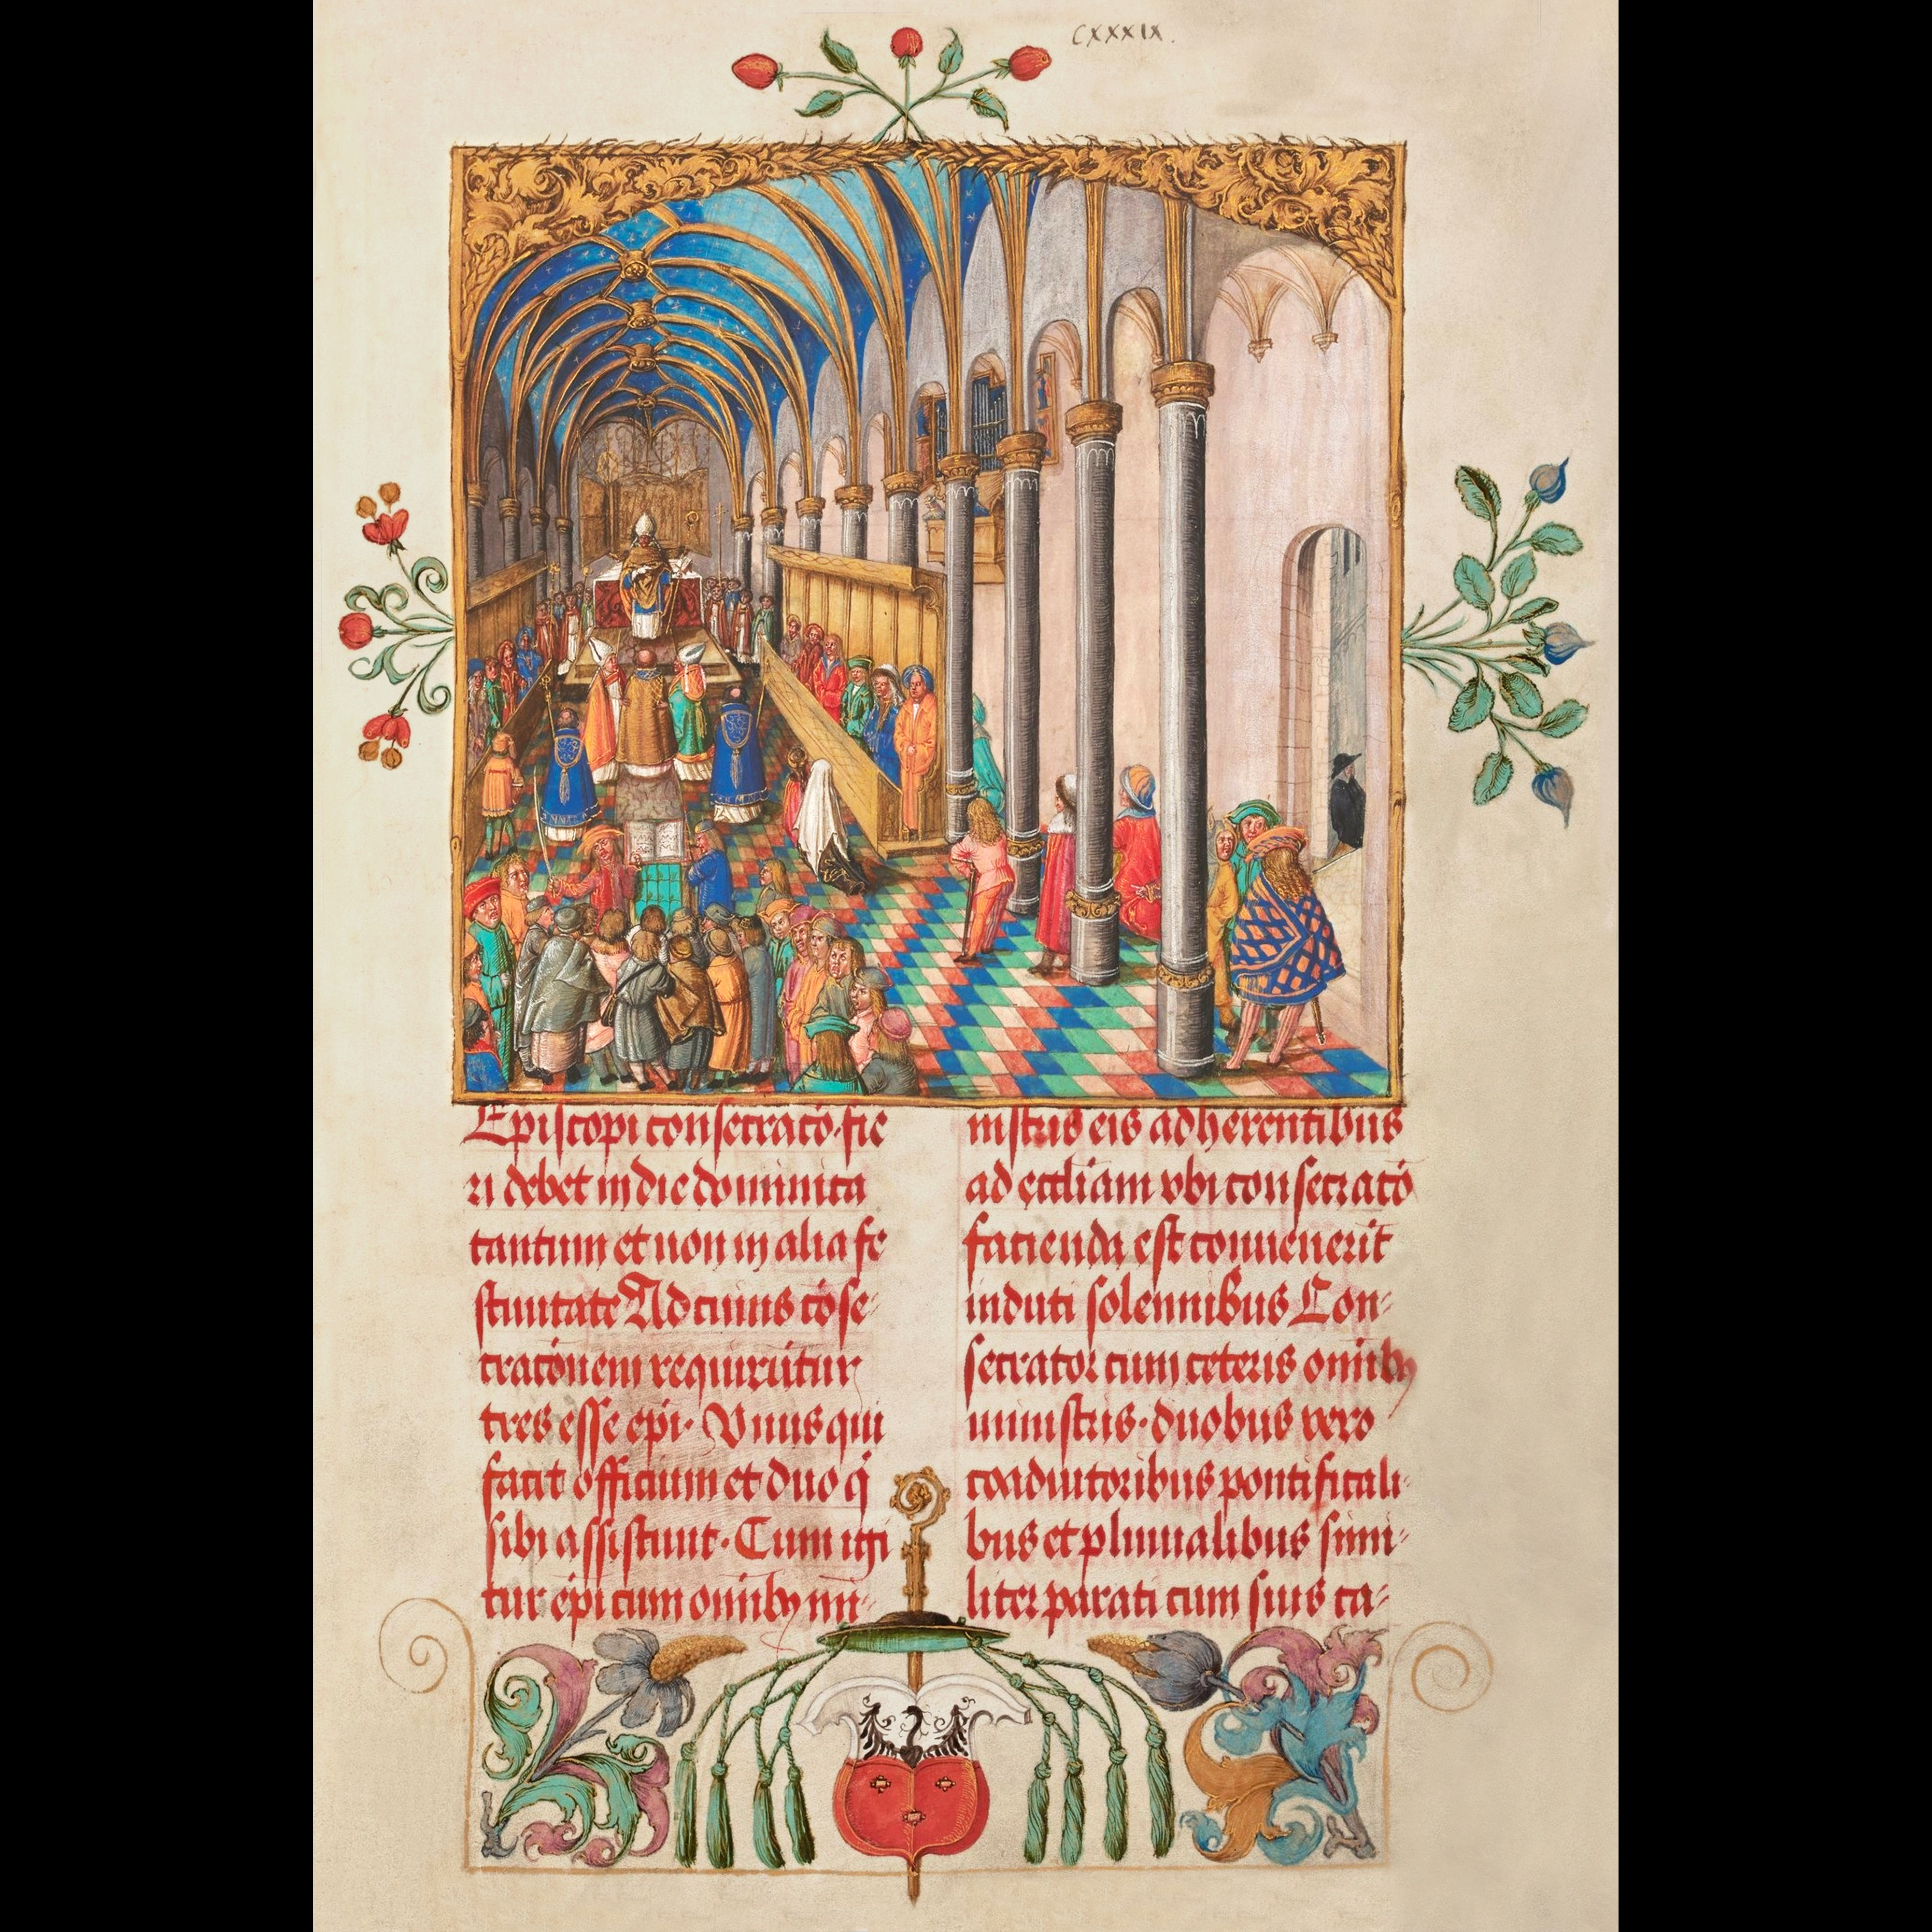 CXXXIX.
Episcopi consecracō. fie
ri debet in die dominica
tantum et non in alia fe
stiuitate Ad cuius cōse-
cracōnem requirūtur
tres esse epī. Vnus qui
facit officium et duo q̄
sibi assistunt. Cum igi
tur ēpi cum omībꝫ mi-
nistris eis adherentibus
ad ecclīam vbi consecracō
facienda est conuenerīt
induti solennibus Con-
secrator cum ceteris omībꝫ
ministris. duobus vero
coadiutoribus pontificali-
bus et pluuialibus simi-
liter parati cum suis ca-